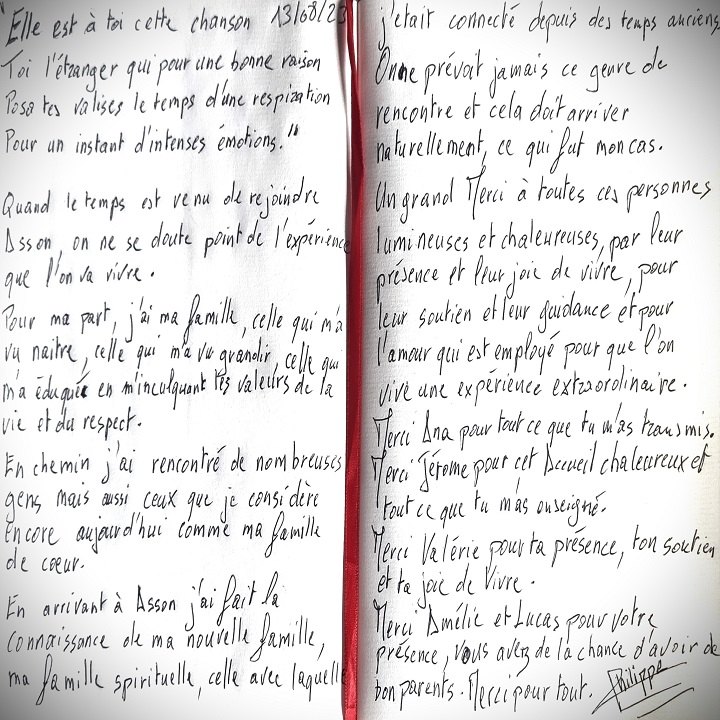 "Elle est à toi cette chanson 13/08/23
Toi l'étranger qui pour une bonne raison
Posa tes valises le temps d'une respiration
Pour un instant d'intenses émotions."
Quand le temps est venu de rejoindre
Asson, on ne se doute point de l'expérience
que l'on va vivre.
Pour ma part, j'ai ma famille, celle qui m'a
vu naitre, celle qui m'a vu grandir, celle qui
m'a éduqué en m'inculquant tes valeurs de la
vie et du respect.
En chemin j'ai rencontré de nombreuses
gens mais aussi ceux que je considère
encore aujourd'hui comme ma famille
de cœur.
En arrivant à Asson j'ai fait la
connaissance de ma nouvelle famille,
ma famille spirituelle, celle avec laquelle
j'était connecté depuis des temps anciens
On ne prévoit jamais ce genre de
rencontre et cela doit arriver
naturellement, ce qui fut mon cas.
Un grand Merci à toutes ces personnes
lumineuses et chaleureuses, par leur
présence et leur joie de vivre, pour
leur soutien et leur guidance et pour
l'amour qui est employé pour que l'on
vive une expérience extraordinaire.
Merci Ana pour tout ce que tu m'as transmis.
Merci Jérome pour cet Accueil chaleureux et
tout ce que tu m'as enseigné.
Merci Valérie pour ta présence, ton soutien
et ta joie de Vivre.
Merci Amélie et Lucas pour votre
présence, vous avez de la chance d'avoir de
bon parents. Merci pour tout.
Philippe